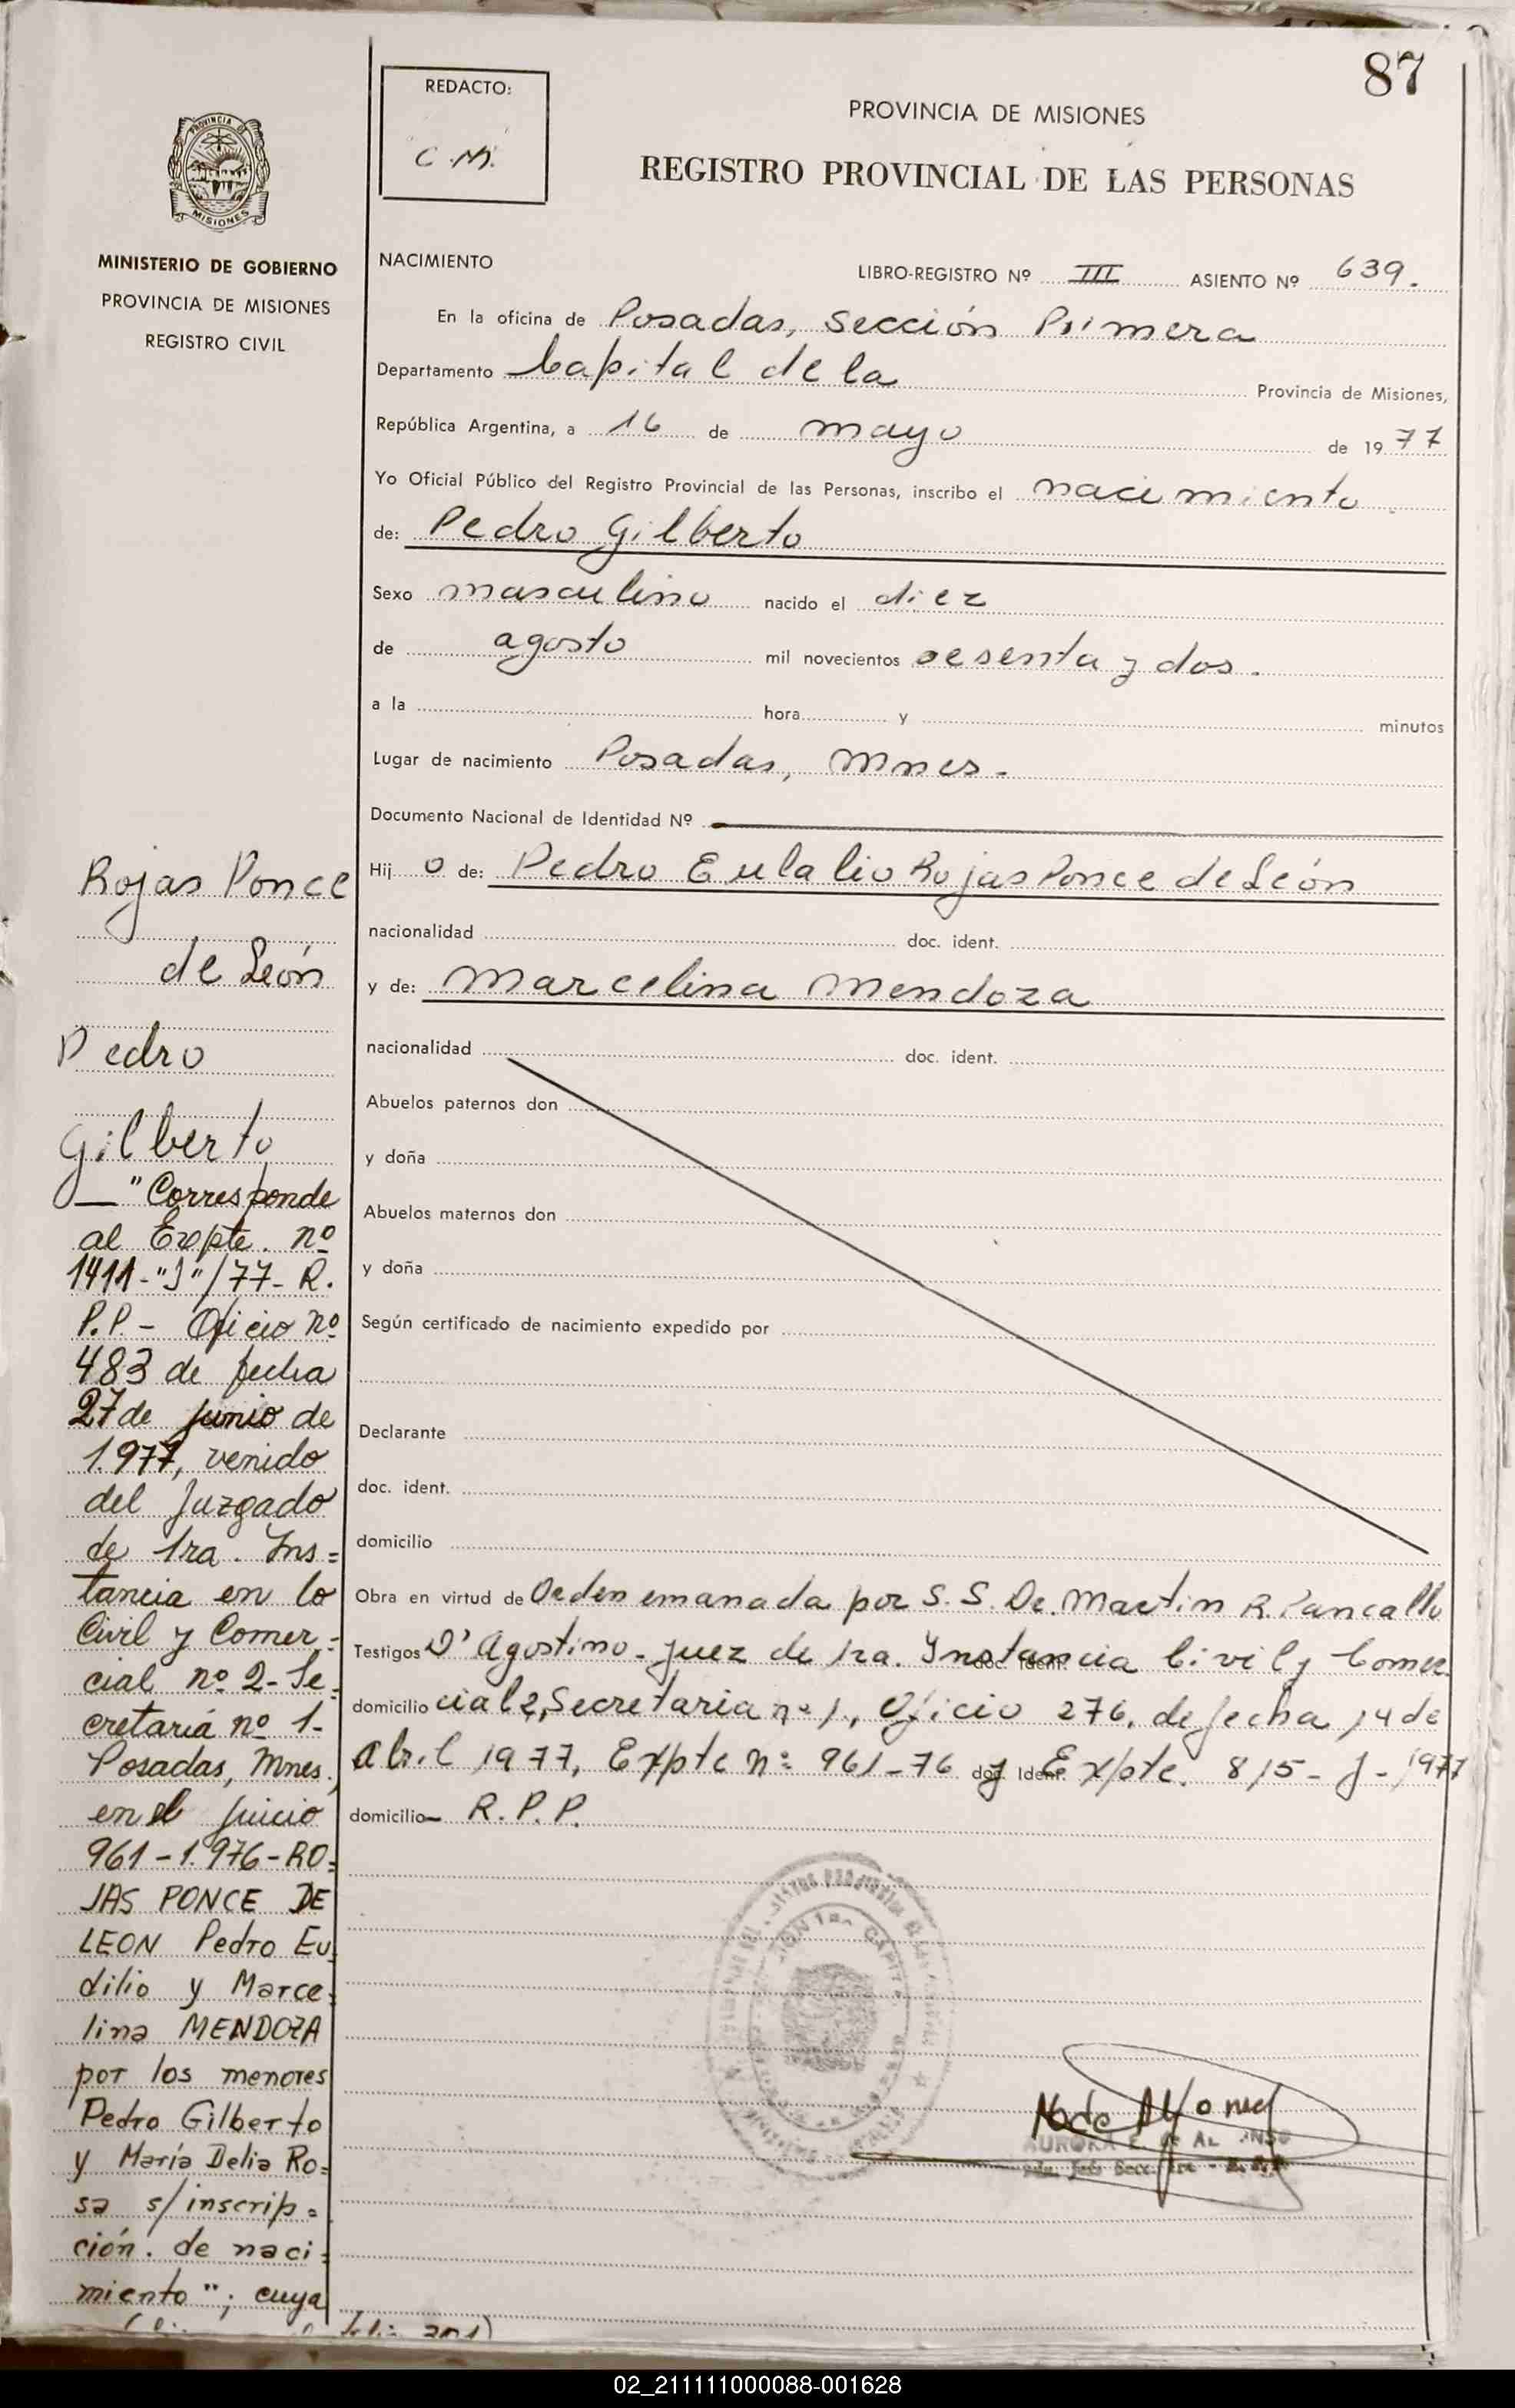 87
REDACTO:
C.M.
PROVINCIA DE MISIONES
REGISTRO PROVINCIAL DE LAS PERSONAS
PROVINCIA DE
MISIONES
MINISTERIO DE GOBIERNO
PROVINCIA DE MISIONES
REGISTRO CIVIL
NACIMIENTO
LIBRO-REGISTRO Nº III ASIENTO Nº 639.
En la oficina de Posadas, Sección Primera
Departamento Capital de la Provincia de Misiones,
República Argentina, a 16 de mayo de 1977
Yo Oficial Público del Registro Provincial de las Personas, inscribo el nacimiento
de: Pedro Gilberto
Sexo masculino nacido el diez
de agosto mil novecientos sesenta y dos.
a la hora y minutos
Lugar de nacimiento Posadas, Mnes.
Documento Nacional de Identidad Nº
Hij o de: Pedro Eulalio Rojas Ponce de León
nacionalidad doc. ident.
y de: Marcelina Mendoza
nacionalidad doc. ident.
Abuelos paternos don
y doña
Abuelos maternos don
y doña
Según certificado de nacimiento expedido por
Declarante
doc. ident.
domicilio
Obra en virtud de Orden emanada por S. S. Dr. Martin R. Pancallo
Testigos D' Agostino - Juez de 1ra. Instancia Civil y Comer
domicilio cial 2, Secretaria nº 1, Oficio 276, de fecha 14 de
Abril 1977, Expte nº 961-76 y Expte. 815 - J - 1977
domicilio R.P.P.
Rojas Ponce
de León
Pedro
Gilberto
"Corresponde
al Expte. nº
1411-"J"/77- R.
P.P. - Oficio nº
483 de fecha
27 de junio de
1.977, venido
del Juzgado
de 1ra. Ins=
tancia en lo
Civil y Comer=
cial nº 2- Se=
cretaría nº 1-
Posadas, Mnes.,
en el juicio
961-1.976-RO=
JAS PONCE DE
LEON Pedro Eu
dilio y Marce=
lina MENDOZA
por los menores
Pedro Gilberto
y María Delia Ro=
sa s/inscrip=
ción. de naci=
miento"; cuya
AURORA E. DE ALONSO
02_211111000088-001628